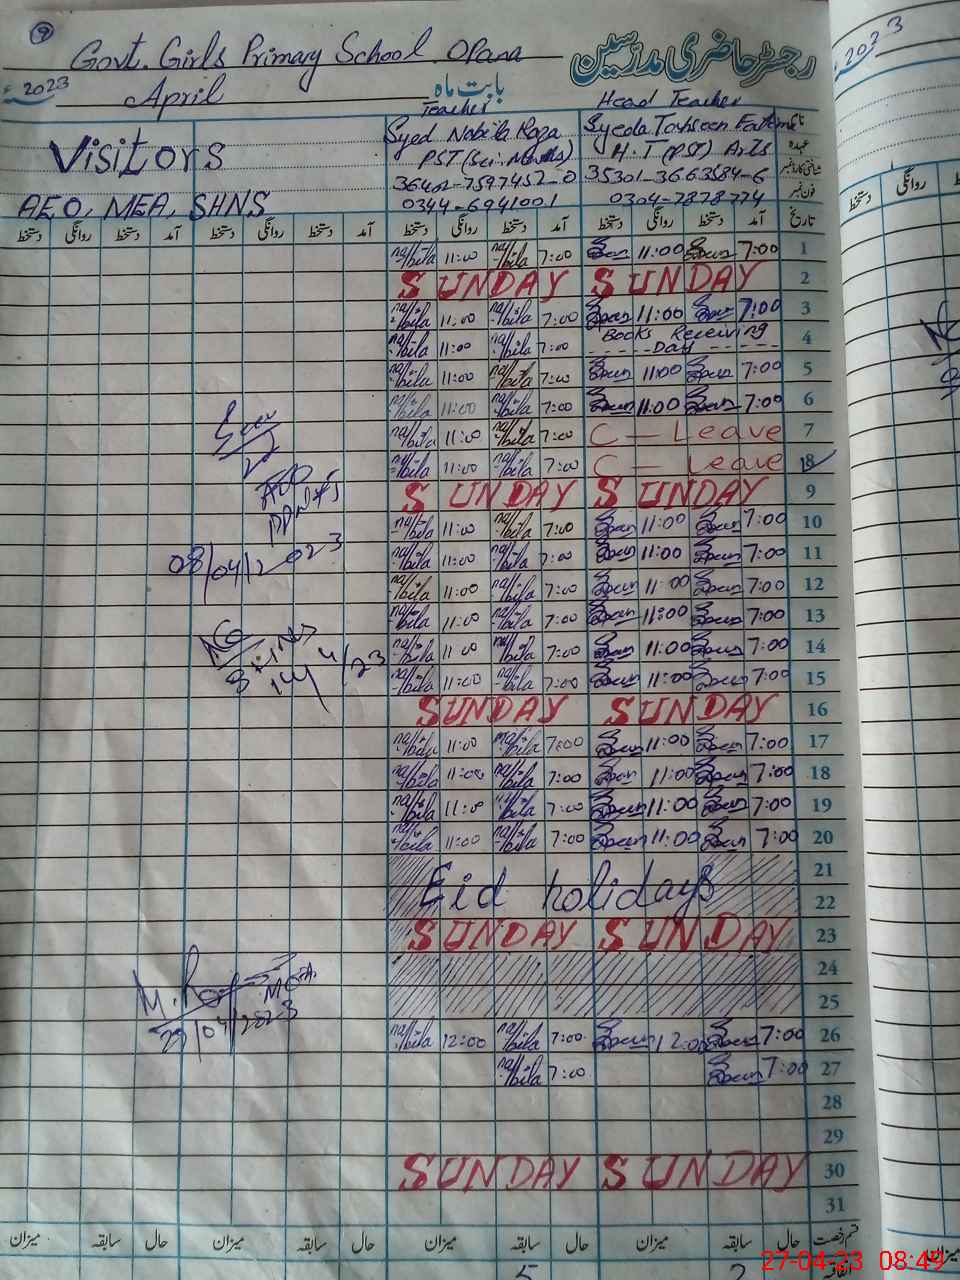 9
Govt. Girls Primary School Opana
رجسٹر حاضری مدرسین
2023
April
بابت ماہ
Teacher
Head Teacher
Visitors
Syed Nabeila Raza
Syeda Tahseen Fatima
PST (Sci. Maths)
H.T (PST) Arts
عہدہ
36402-7597452-0
35301-3663584-6
شناختی کارڈ نمبر
AEO, MEA, SHNS
0344-6941001
0304-7878774
فون نمبر
دستخط روانگی دستخط آمد دستخط روانگی دستخط آمد دستخط روانگی دستخط آمد دستخط روانگی دستخط آمد تاریخ
nabila 11:00 nabila 7:00 11:00 7:00 1
SUNDAY SUNDAY 2
nabila 11:00 nabila 7:00 11:00 7:00 3
nabila 11:00 nabila 7:00 Books Receiving Day 4
nabila 11:00 nabila 7:00 11:00 7:00 5
nabila 11:00 nabila 7:00 11:00 7:00 6
nabila 11:00 nabila 7:00 C-Leave 7
nabila 11:00 nabila 7:00 C-Leave 8
SUNDAY SUNDAY 9
nabila 11:00 nabila 7:00 11:00 7:00 10
08/04/2023
nabila 11:00 nabila 7:00 11:00 7:00 11
nabila 11:00 nabila 7:00 11:00 7:00 12
nabila 11:00 nabila 7:00 11:00 7:00 13
nabila 11:00 nabila 7:00 11:00 7:00 14
14/4/23
nabila 11:00 nabila 7:00 11:00 7:00 15
SUNDAY SUNDAY 16
nabila 11:00 nabila 7:00 11:00 7:00 17
nabila 11:00 nabila 7:00 11:00 7:00 18
nabila 11:00 nabila 7:00 11:00 7:00 19
nabila 11:00 nabila 7:00 11:00 7:00 20
21
Eid holidays 22
SUNDAY SUNDAY 23
24
25
M.
MEA.
27/04/2023
nabila 12:00 nabila 7:00 12:00 7:00 26
nabila 7:00 7:00 27
28
29
SUNDAY SUNDAY 30
31
میزان سابقہ حال میزان سابقہ حال میزان سابقہ حال میزان سابقہ حال قسم رخصت
5 2 اتفاقیہ
27-04-23 08:49
2023
روانگی دستخط
میزان